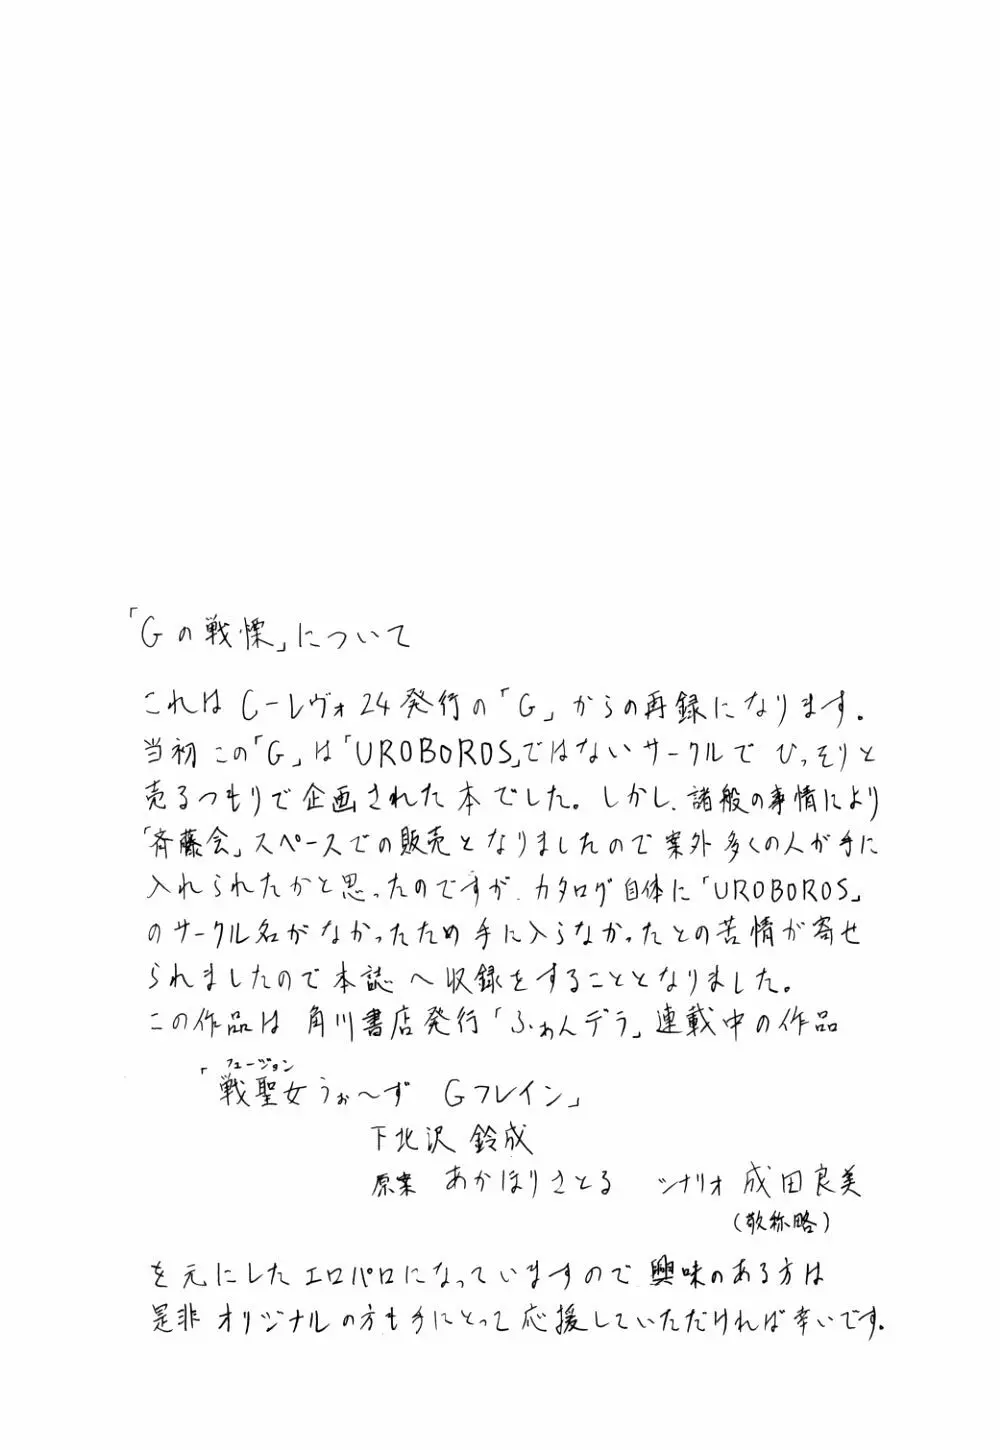 「Gの戦慄」について
これはC-レヴォ24発行の「G」からの再録になります。
当初この「G」は「UROBOROS」ではないサークルでひっそりと
売るつもりで企画された本でした。しかし、諸般の事情により
「斉藤会」スペースでの販売となりましたので案外多くの人が手に
入れられたかと思ったのですが、カタログ自体に「UROBOROS」
のサークル名がなかったため手に入らなかったとの苦情が寄せ
られましたので本誌へ収録をすることとなりました。
この作品は 角川書店発行「ふぁんデラ」連載中の作品
フュージョン
「戦聖女うぉ〜ず Gフレイン」
下北沢 鈴成
原案 あかほりさとる シナリオ 成田良美
(敬称略)
を元にしたエロパロになっていますので興味のある方は
是非オリジナルの方も手にとって応援していただければ幸いです。